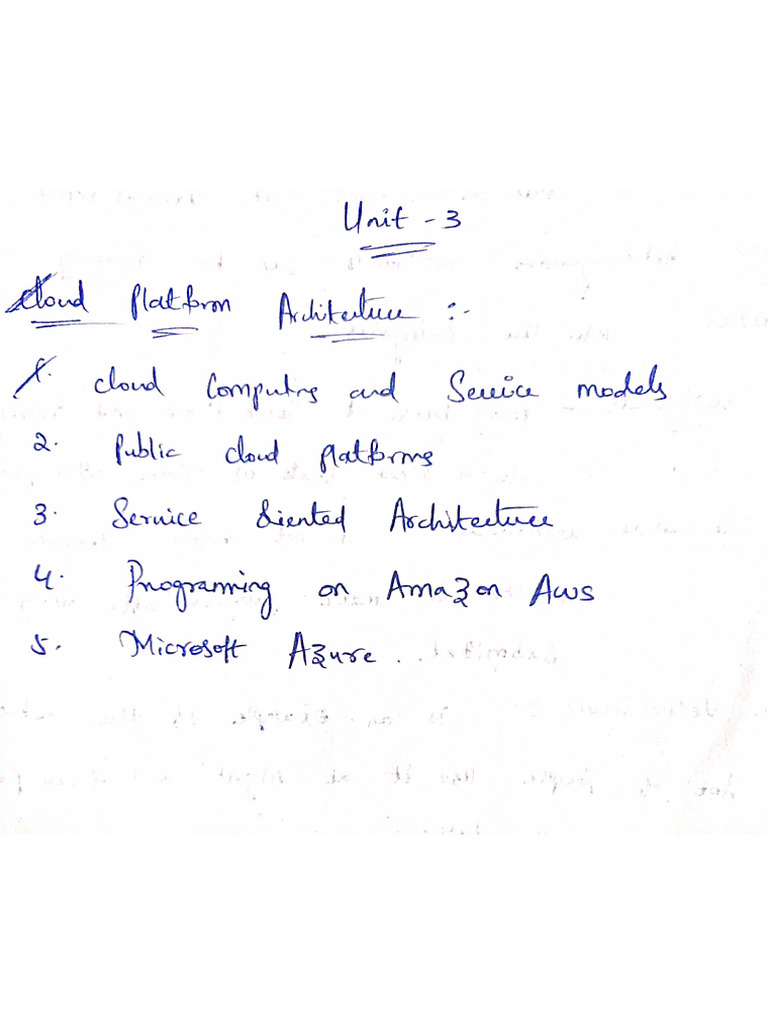 Unit - 3
Cloud Platform Architecture :-
1. Cloud Computing and Service models
2. Public cloud platforms
3. Service Oriented Architecture
4. Programming on Amazon Aws
5. Microsoft Azure..